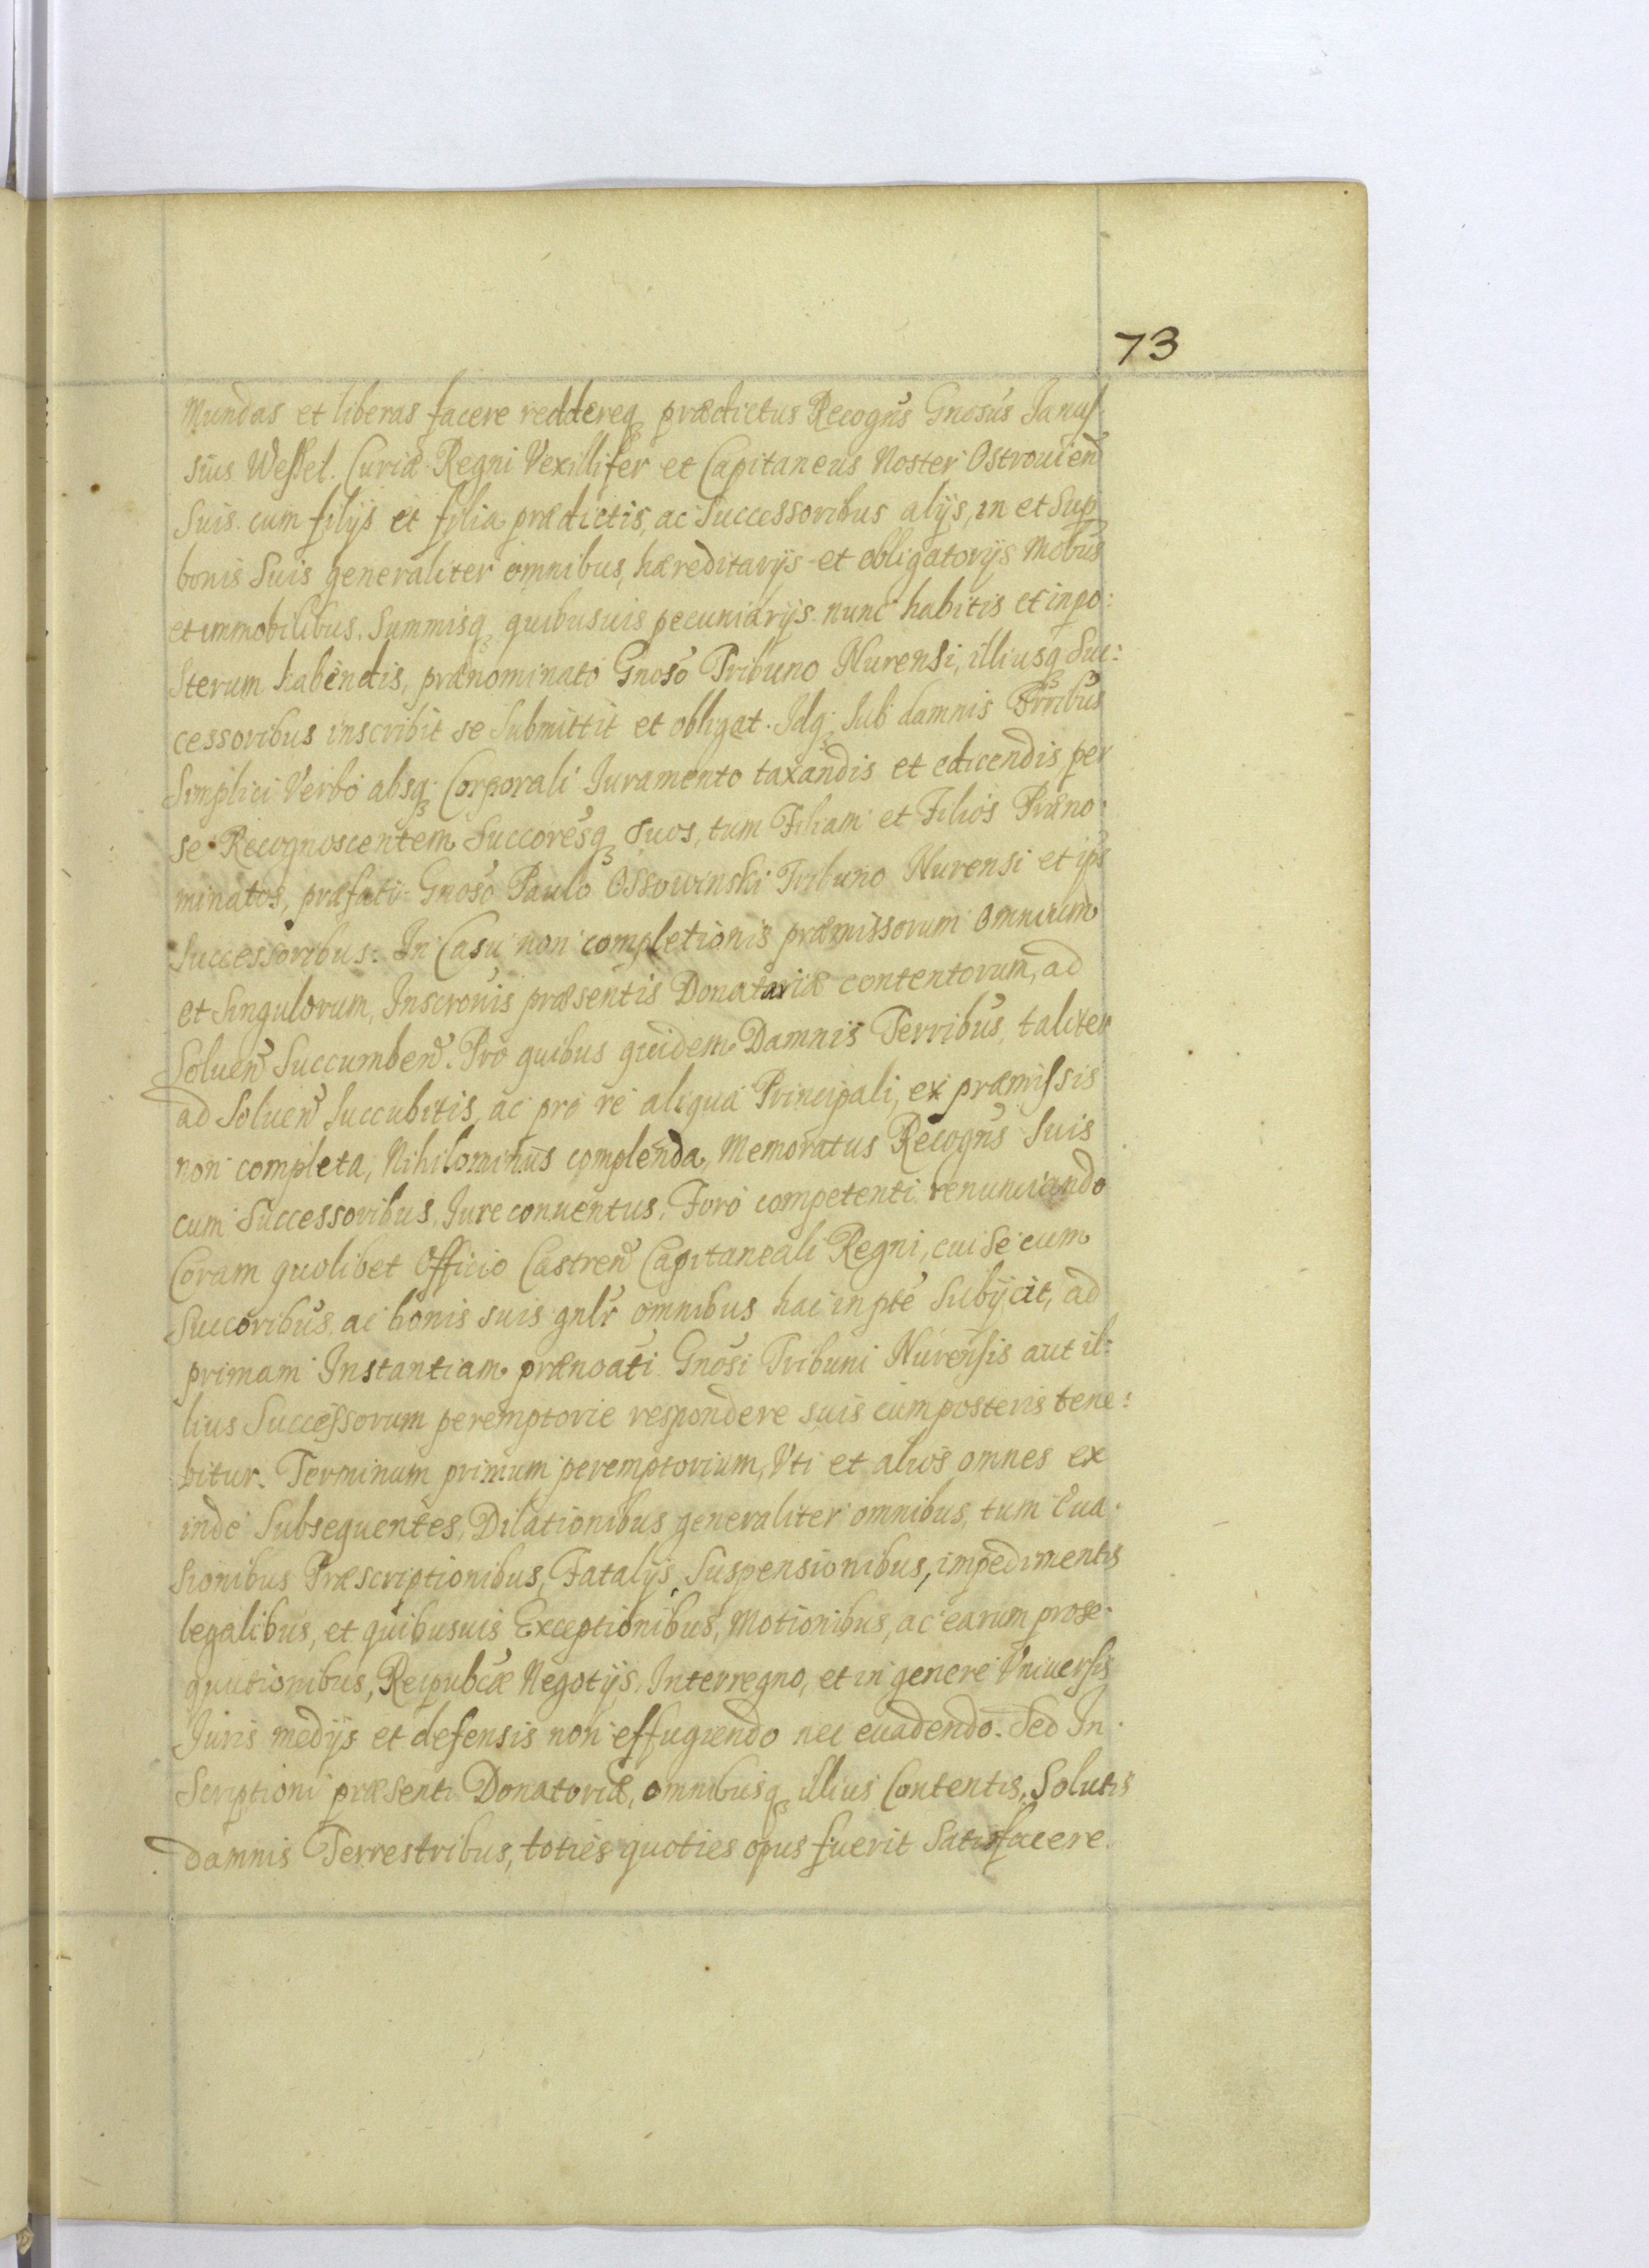 73
Mundas et liberas facere reddereq₃ prædictus Recogn̄s Gnosūs Janus-
sius Wessel. Curiæ Regni Vexillifer et Capitaneus Noster Ostrouień
Suis cum filijs et filia prædictis, ac Successoribus alijs, in et Sup
bonis Suis generaliter omnibus, hæreditarijs et obligatorijs Mobūs
et immobilibus. Summisq₃ quibusuis pecuniarijs nunc habitis et inpo:
Sterum habendis, prænominato Gnosō Tribuno Nurensi, illiusq₃ Suc:
cessoribus inscribit se Submittit et obligat. Idq₃ Sub damnis Trribūs
Simplici Verbo absq₃ Corporali Iuramento taxandis et edicendis per
se Recognoscentem Succorēsq₃ Suos, tum Filiam et Filios Præno:
minatos, præfato Gnosō Paulo Ossowinski Tribuno Nurensi et ips
Successoribus. In Casu non completionis præmissorum omnium
et Singulorum, Inscrōnis præsentis Donatoriæ contentorum, ad
Soluēn Succumbēn. Pro quibus quidem Damnis Terribūs, taliter
ad Soluēn Succubitis, ac pro re aliqua Principali, ex præmissis
non completa, Nihilominus complenda, Memoratus Recogn̄s Suis
cum Successoribus, Iure conuentus, Foro competenti renunciando
Coram quolibet Officio Castrēn Capitaneali Regni, cui Se cum
Succoribūs, ac bonis suis gnlr̄ omnibus hac inptē Subijcit, ad
primam Instantiam prænoāti Gnōsi Tribuni Nurensis aut il:
lius Successorum peremptorie respondere suis cum posteris tene:
bitur. Terminum primum peremptorium, Vti et alios omnes ex
inde Subsequentes, Dilationibus generaliter omnibus, tum Eua.
Sionibus Præscriptionibus, Fatalijs, Suspensionibus, impedimentis
legalibus, et quibusuis Exceptionibus, Motionibus, ac earum prose.
quutionibus, Reipubcæ Negotijs, Interregno, et in genere Vniuersis
Iuris medijs et defensis non effugiendo nec euadendo. Sed In.
Scriptioni præsenti Donatoriæ, omnibusq₃ illius Contentis, Solutis
damnis Terrestribus, toties quoties opus fuerit Satisfacere.